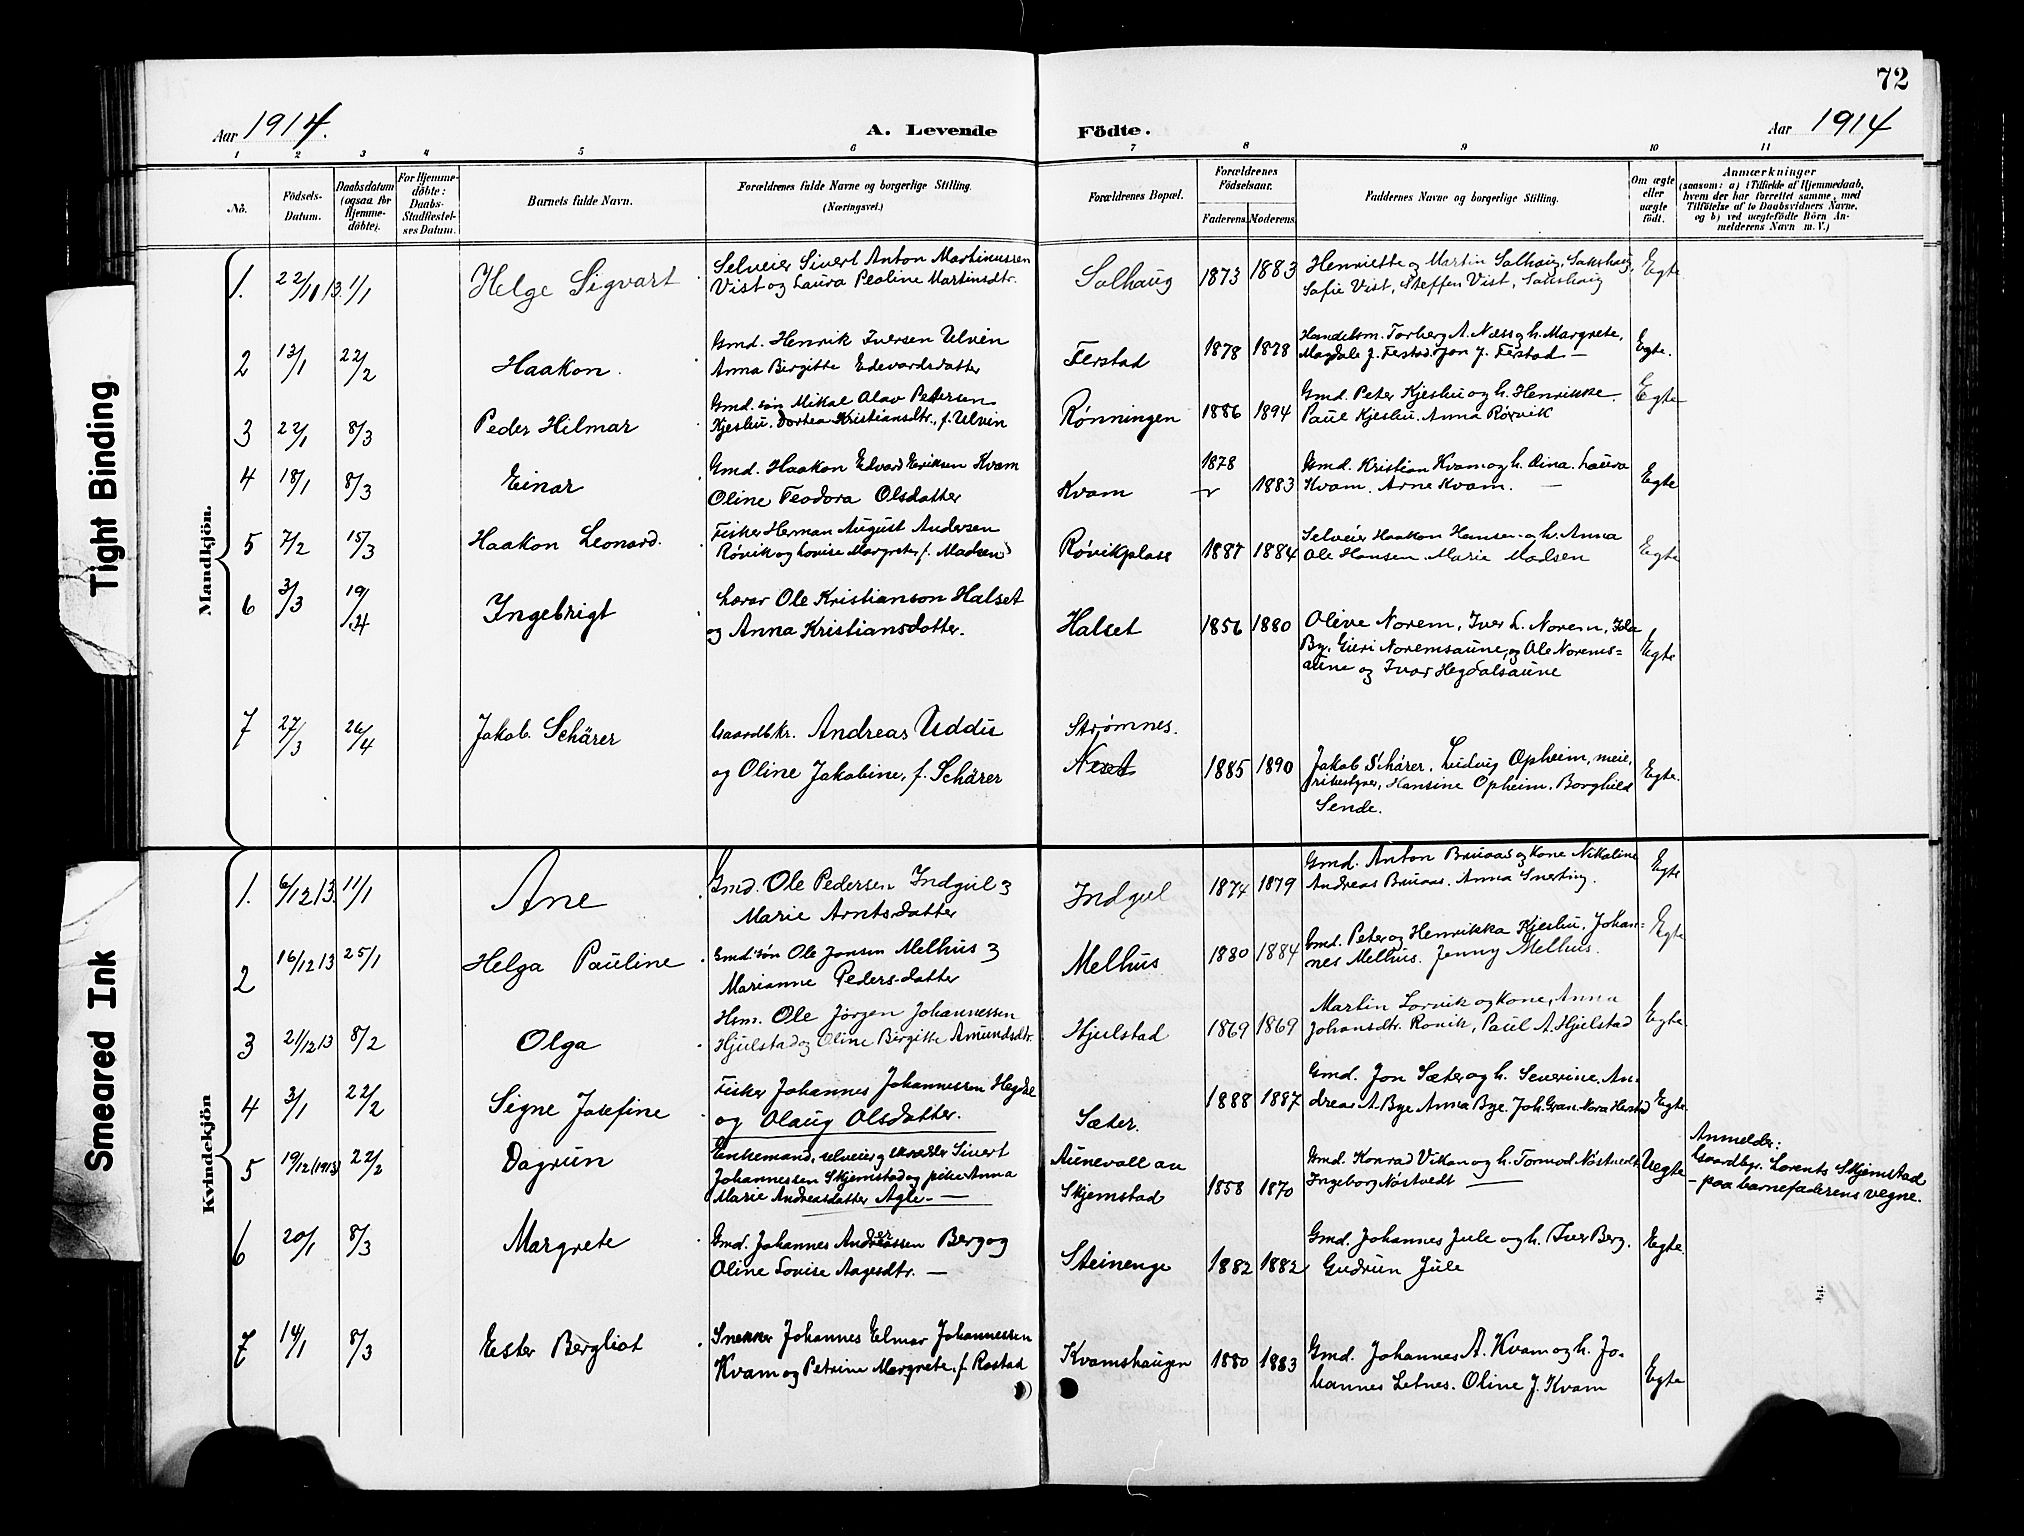 72
Aar 1914.
A. Levende Födte.
Aar 1914
1 2 3 4 5 6 7 8 9 10 11
No.
Födsels-
Datum.
Daabsdatum
(ogsaa for
Hjemme-
döbte).
For Hjemme-
döbte:
Daabs-
Stadfæstel-
ses Datum.
Barnets fulde Navn.
Forældrenes fulde Navne og borgerlige Stilling.
(Næringsvei.)
Forældrenes Bopæl.
Forældrenes
Födselsaar.
Faderens. Moderens.
Faddernes Navne og borgerlige Stilling.
Om ægte
eller
uægte
födt.
Anmærkninger
(saasom: a) i Tilfælde af Hjemmedaab,
hvem der har forrettet samme, med
Tilföielse af to Daabsvidners Navne,
og b) ved uægtefödte Börn An-
melderens Navn m. V.)
Mandkjön.
1. 22/11 13. 1/1 Helge Sigvart
Selveier Sivert Anton Martinussen
Vist og Laura Pealine Martinsdtr.
Salhaug 1873 1883
Henriette og Martin Salhaug, Sakshaug,
Sofie Vist, Steffen Vist, Sakshaug
Egte
2 13/1 22/2 Haakon.
Gmd. Henrik Iversen Ulvin
Anna Birgitte Edevardsdatter
Ferstad 1878 1878
Handelsm. Torberg A. Næss og h. Margrete,
Magdale J. Ferstad. Jon J. Ferstad —
Egte.
3 22/1 8/3 Peder Hilmar
Gmd. søn Mikal Olav Petersen
Kjeslu. Dortea Kristiansdtr., f. Ulvin
Rønningen 1886 1894
Gmd. Peter Kjeslu og h. Henrikke
Paul Kjeslu. Anna Rørvik
Egte
4 18/1 8/3 Einar
Gmd. Haakon Edvard Eriksen Kvam
Oline Teodora Olsdatter
Kvam 1878 1883
Gmd. Kristian Kvam og h. Dina. Laura
Kvam. Arne Kvam. —
Egte
5 7/2 15/3 Haakon Leonard.
Fisker Herman August Andersen
Røvik og Lovise Margrete, f. Madsen
Røvikplass 1887 1884
Selveier Haakon Hansen og h. Anna
Ole Hansen. Marie Madsen
Egte
6 3/3 19/4 Ingebrigt
Lærer Ole Kristianson Halset
og Anna Kristiansdotter.
Halset 1856 1880
Olive Norem, Iver L. Norem, Ida
By. Guri Noremsaune, og Ole Norems=
aune og Ivar Hegdalsaune
Egte
7 27/3 26/4 Jakob Schärer
Gaardbr. Andreas Uddu
og Oline Jakobine, f. Schärer
Strømnes.
Neset 1885 1890
Jakob Schärer, Ludvig Opheim, meie,
ribestyrer, Hansine Opheim. Borghild
Sende.
Egte.
Kvindekjön
1. 6/12 13. 11/1 Ane
Gmd. Ole Pedersen Indgul og
Marie Arntsdatter
Indgul 1874 1879
Gmd. Anton Bruaas og Kone Nikoline
Andreas Bruaas. Anna Snerting.
Egte
2 16/12 13 25/1 Helga Pauline
Gmd. søn Ole Jonsen Melhus og
Marianne Pedersdatter
Melhus 1880 1884
Gmd. Peter og Henrikka Kjeslu. Johan=
nes Melhus. Jenny Melhus.
Egte
3 21/12 13 8/2 Olga
Hsm. Ole Jørgen Johannessen
Hjulstad og Oline Birgitte Amundsdtr.
Hjulstad 1869 1869
Martin Lorvik og Kone, Anna
Johansdtr. Rønik, Paul A. Hjulstad
Egte
4 3/1 22/2 Signe Josefine
Fisker Johannes Johannessen Hegdal
og Olaug Olsdatter.
Sæter. 1888 1887
Gmd. Jon Sæter og h. Severine, An-
dreas A. Bye Anna Bye. Joh. Gran. Nora Herstad
Egte
5 19/12 (1913) 22/2 Dagrun
Enkemand, selveier og skrædder Sivert
Johannessen Skjemstad og pike Anna
Marie Andreasdatter Agle. —
Aunevall av
Skjemstad 1858 1870
Gmd. Konrad Vikan og h. Tormod Nøstvedt
Ingeborg Nøstvedt —
Uegte
Anmelder:
Gaardbr. Lorents Skjemstad
- paa barnefaderens vegne.
6 20/1 8/3 Margrete
Gmd. Johannes Andreassen Berg og
Oline Lovise Aagesdtr. —
Steinenge 1882 1882
Gmd. Johannes Jule og h. Iver Berg.
Gudrun Jule
Egte.
7 14/1 8/3 Ester Bergliot
Snekker Johannes Elmar Johannessen
Kvam og Petrine Margrete, f. Rostad
Kvamshaugen 1880 1883
Gmd. Johannes A. Kvam og h. Jo-
hannes Letnes. Oline J. Kvam
Egte
Tight Binding
Smeared Ink